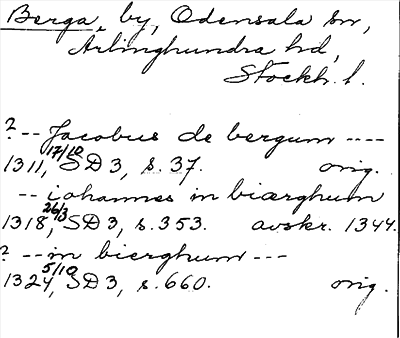 Berga, by, Odensala sn,
Ärlinghundra hd,
Stockh. l.
? -- Jacobus de bergum ----
1311, 17/10 SD 3, s. 37. orig.
-- iohannes in biærghum
1318, 26/3 SD 3, s. 353. avskr. 1344.
? -- in bierghum ---
1324, 5/10 SD 3, s. 660. orig.